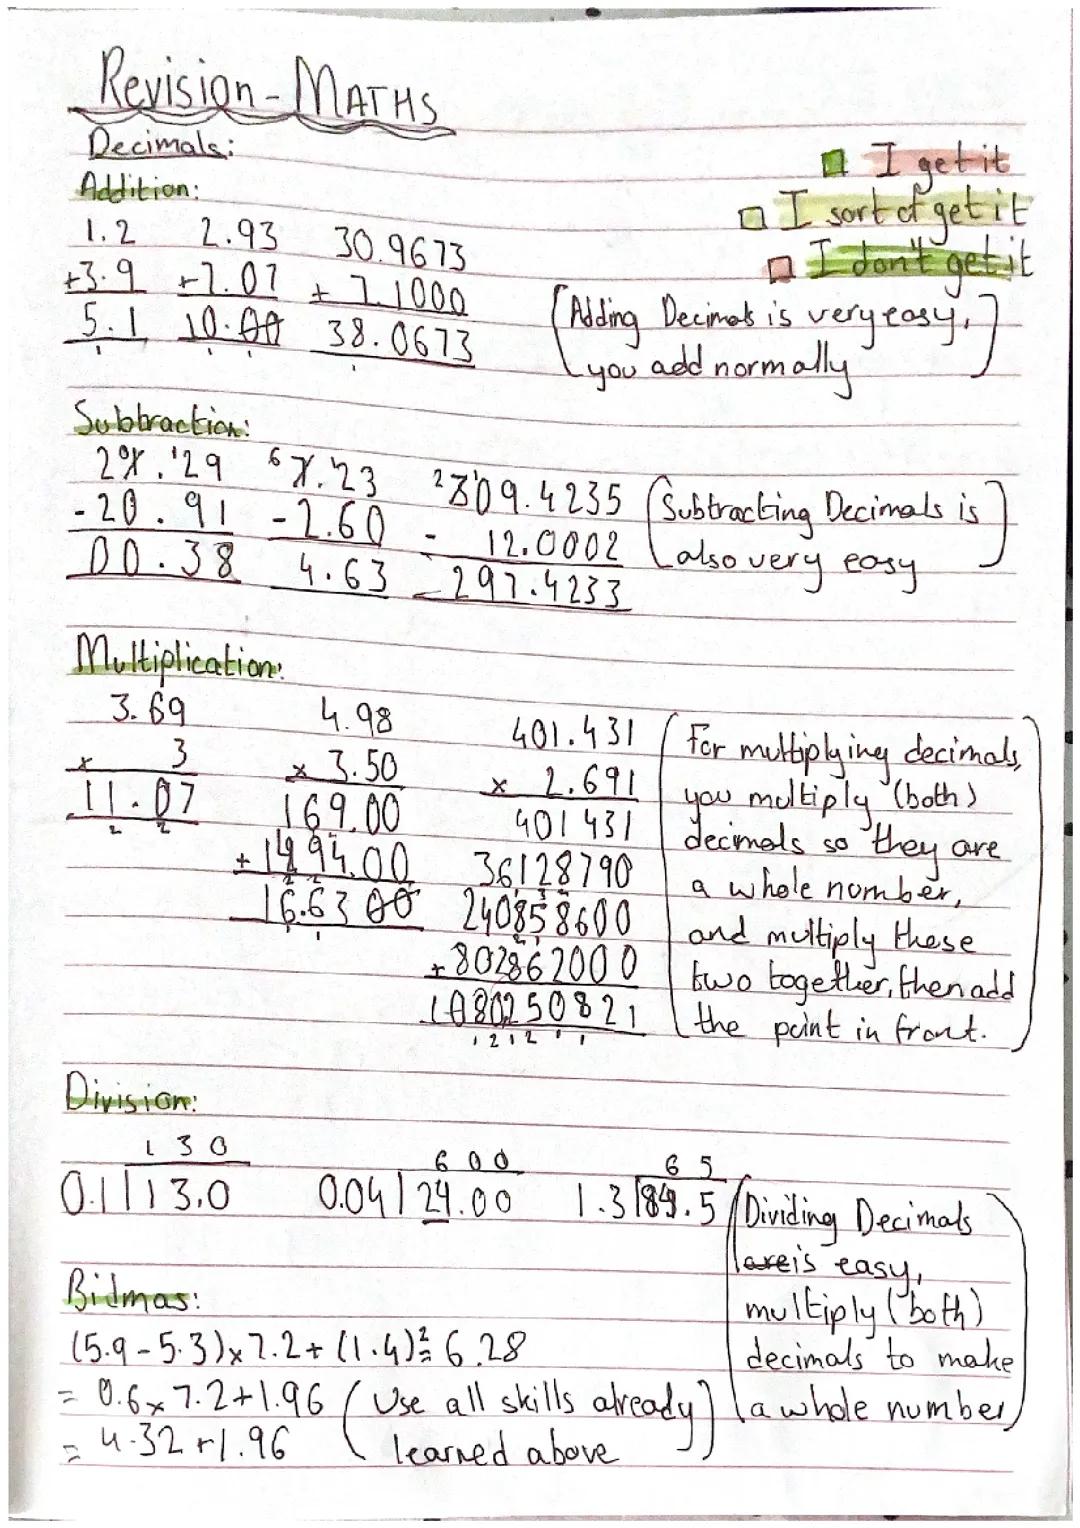 Revision - MATHS
Decimals:
I get it
I sort of get it
I don't get it
Addition:
1.2 2.93 30.9673
+3.9 +7.07 + 7.1000
5.1 10.00 38.0673
(Adding Decimals is very easy,
you add normally)
Subtraction:
21.29 7.23 309.4235
-20.91 -2.60 - 12.0002
00.38 4.63 297.4233
(Subtracting Decimals is
also very easy)
Multiplication:
3.69 4.98 401.431
x 3 x 3.50 x 2.691
11.07 169.00 401431
+ 1494.00 36128790
16.6300 240858600
+802862000
1080250821
(For multiplying decimals,
you multiply (both)
decimals so they are
a whole number,
and multiply these
two together, then add
the point in front.)
Division:
130 600 65
0.1|13.0 0.04|24.00 1.3|84.5
(Dividing Decimals
are is easy,
multiply (both)
decimals to make
a whole number)
Bidmas:
(5.9-5.3)x7.2+(1.4)²= 6.28
= 0.6x7.2+1.96
= 4.32+1.96
(Use all skills already
learned above)